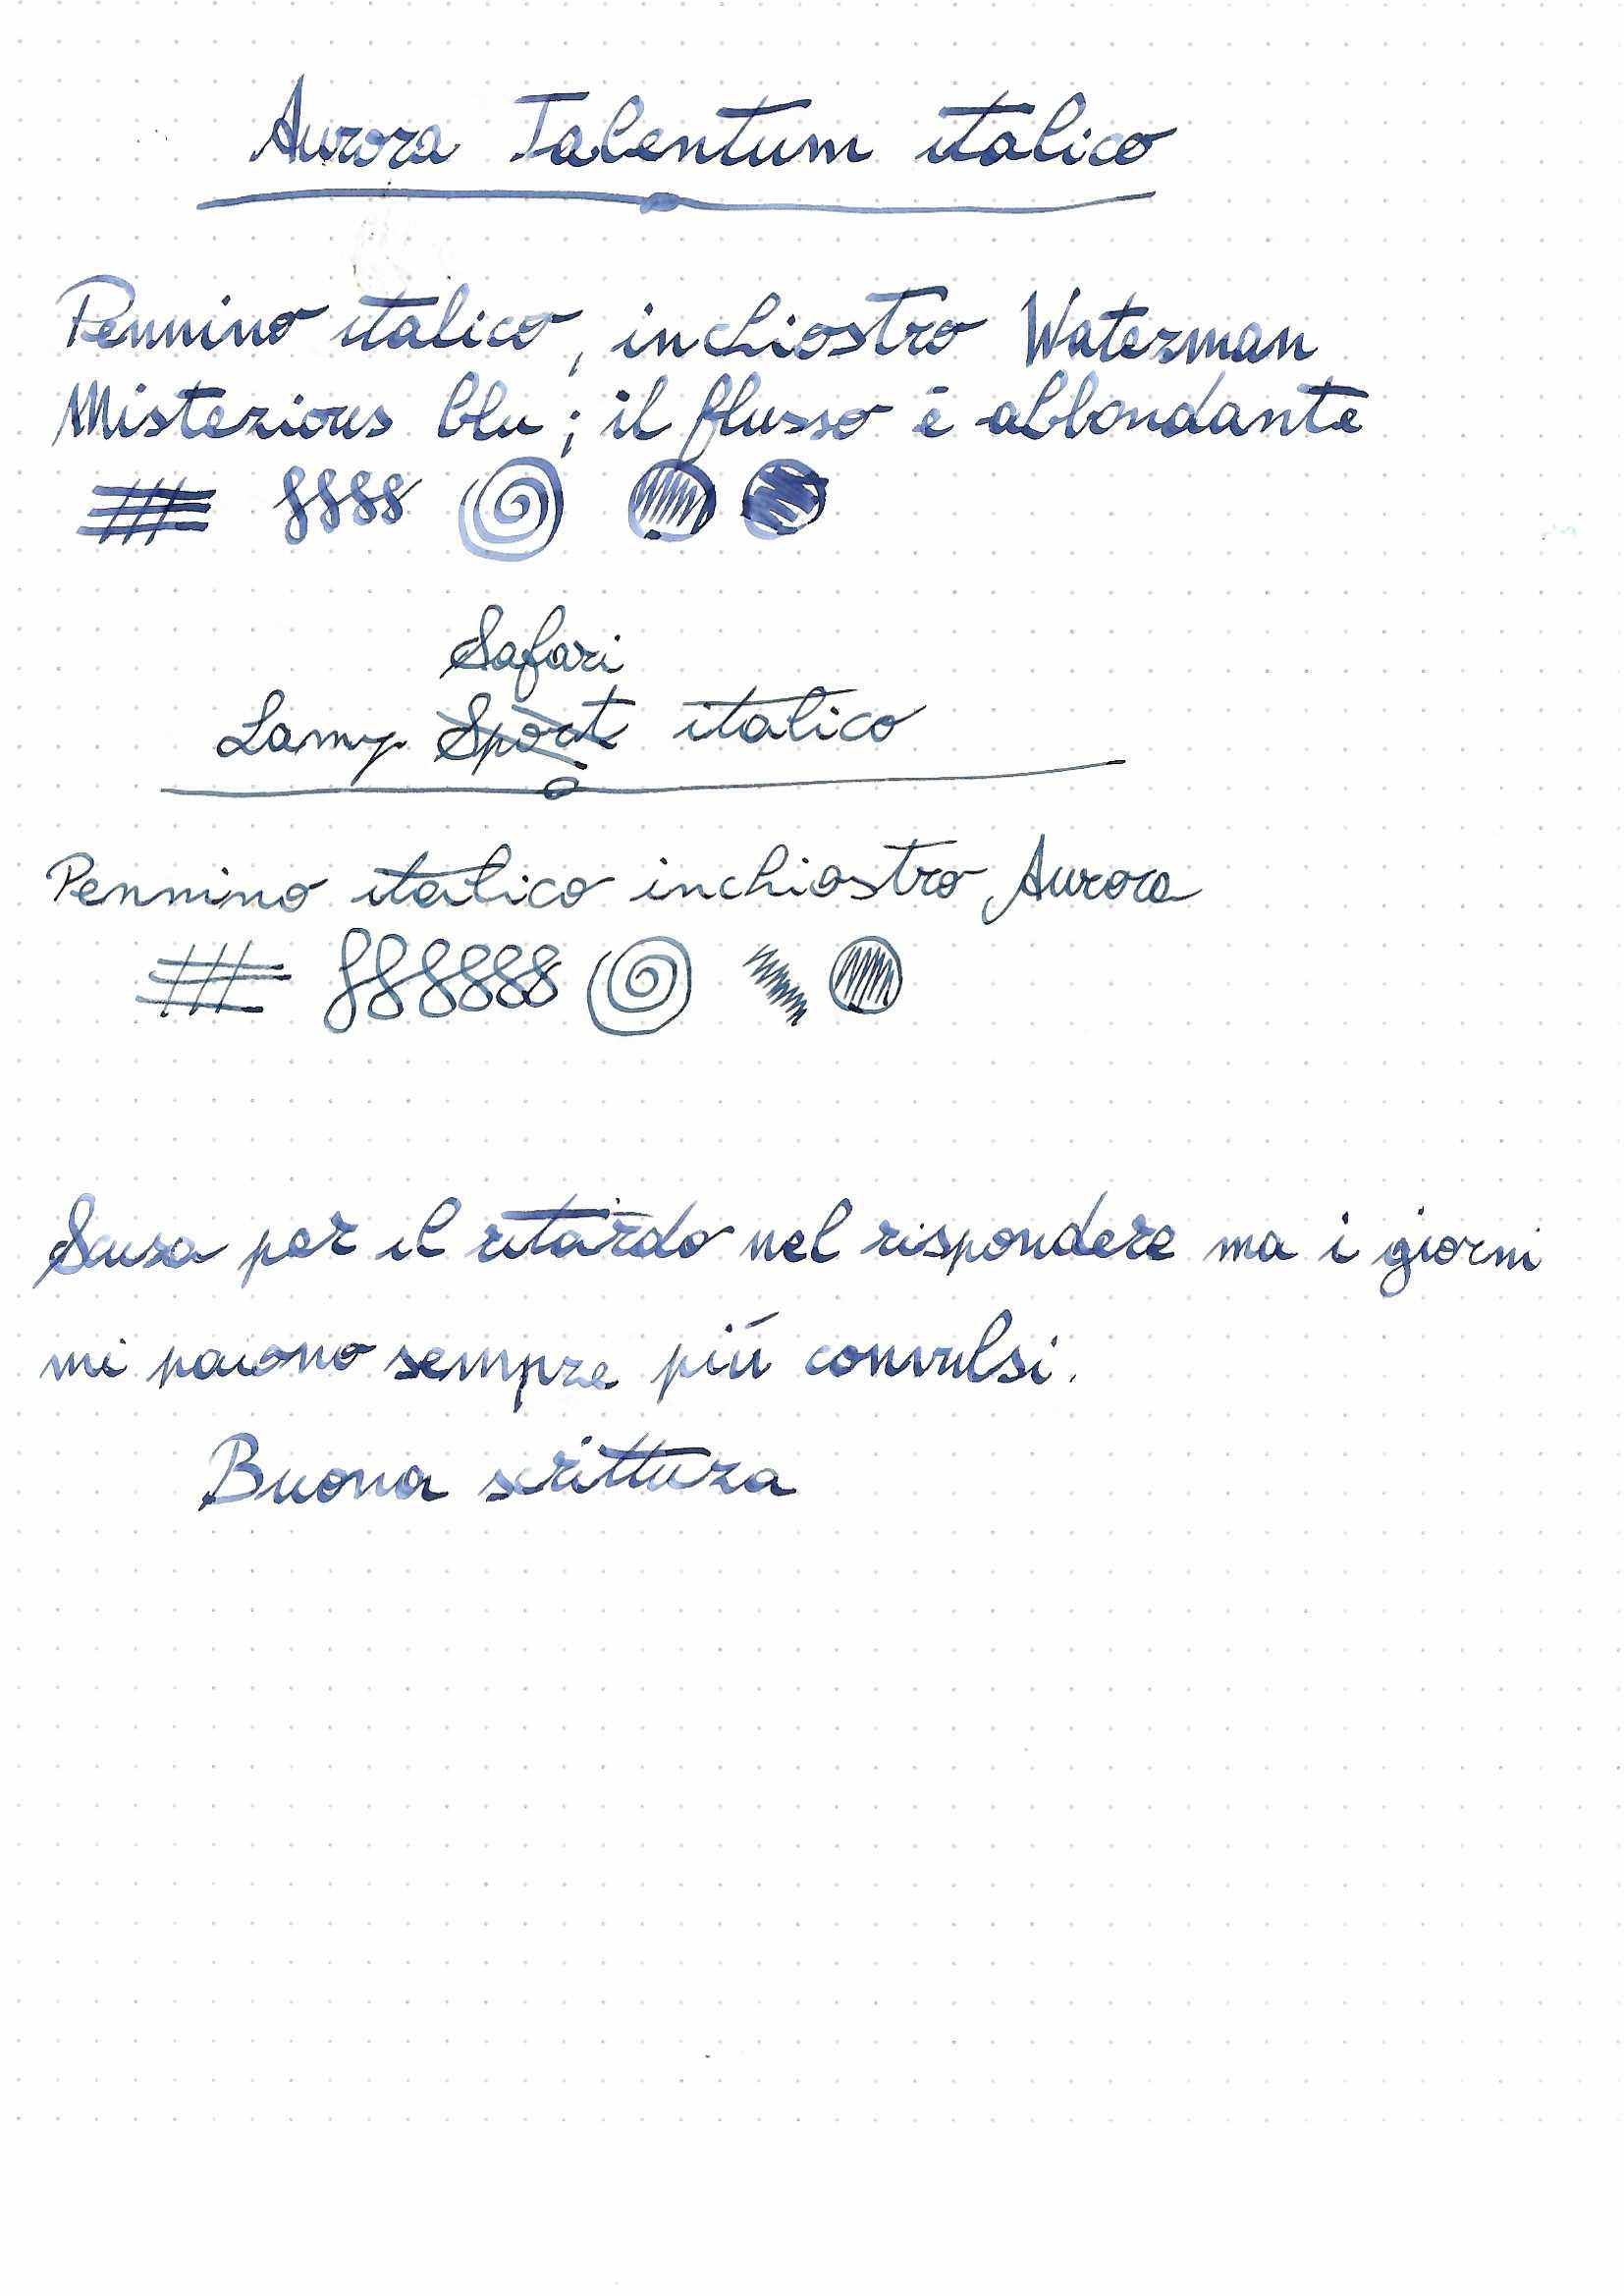 Aurora Talentum italico
Pennino italico, inchiostro Waterman
Misterious blu; il flusso è abbondante
Safari
Lamy Sport italico
Pennino italico inchiostro Aurora
Scusa per il ritardo nel rispondere ma i giorni
mi paiono sempre più convulsi.
Buona scrittura